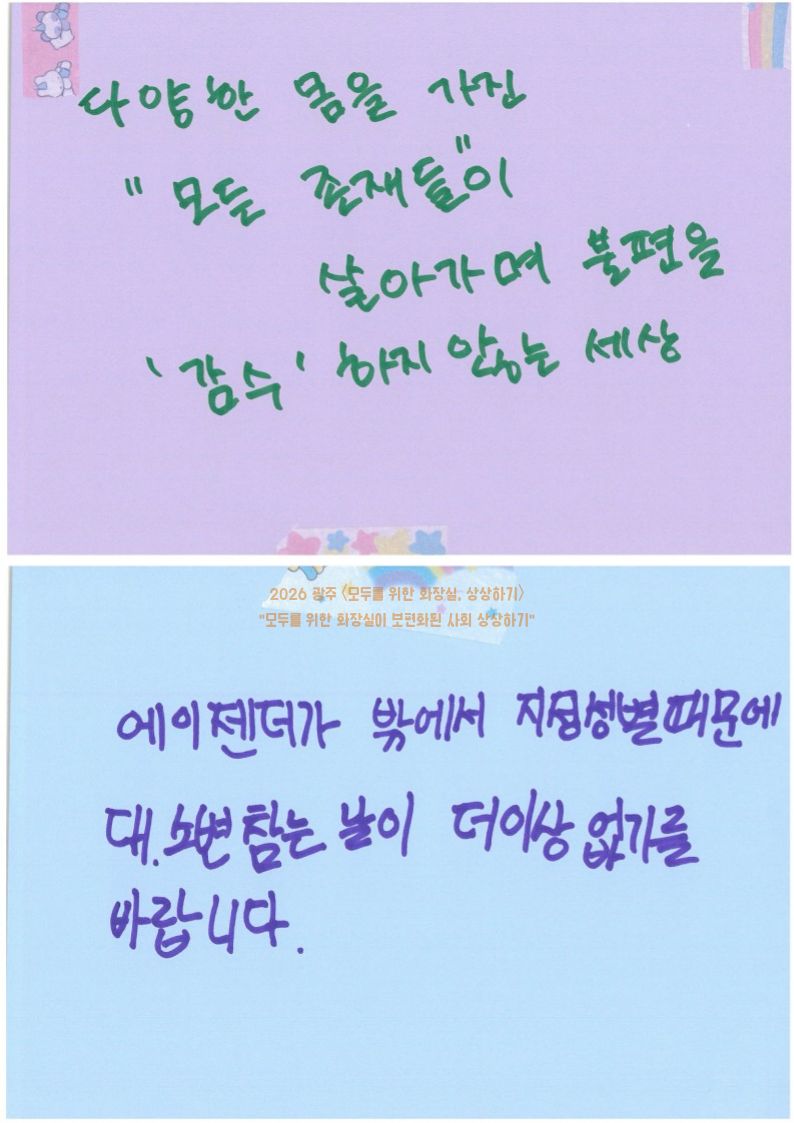 다양한 몸을 가진
"모든 존재들"이
살아가며 불편을
'감수' 하지 않는 세상
2026 광주 <모두를 위한 화장실, 상상하기>
"모두를 위한 화장실이 보편화된 사회 상상하기"
에이젠더가 밖에서 지정성별때문에
대.소변 참는 날이 더이상 없기를
바랍니다.